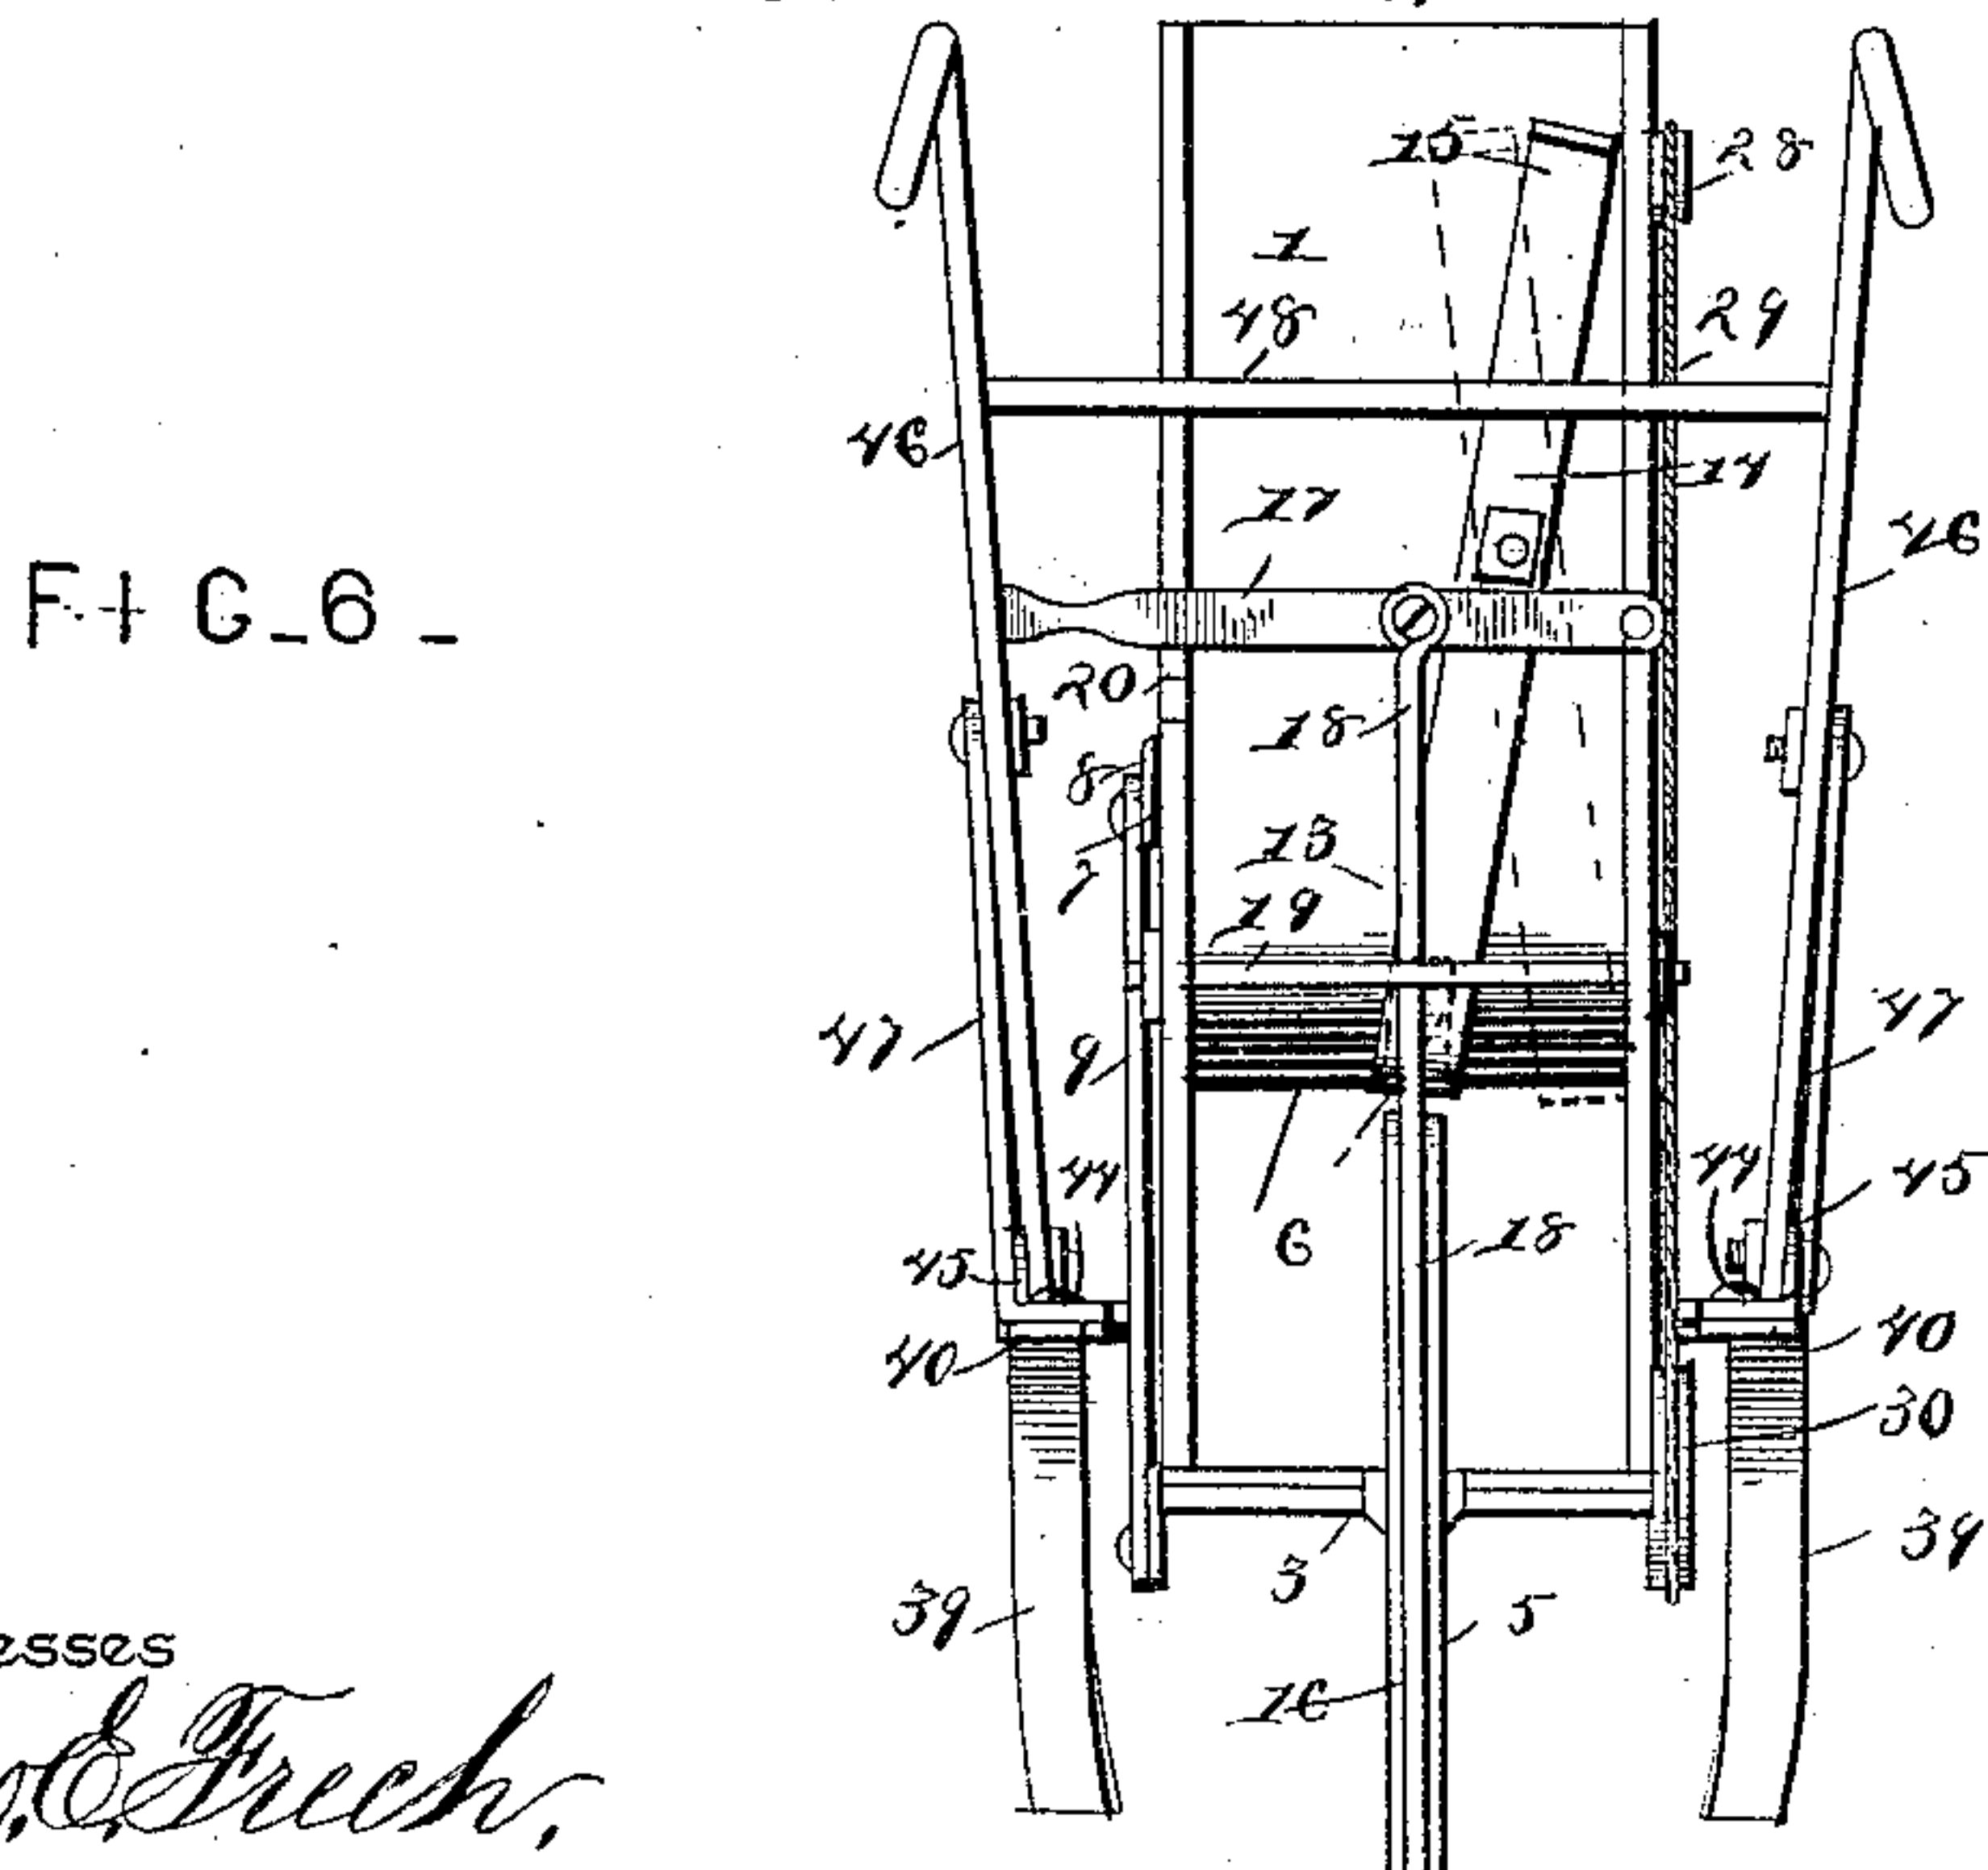 15
28
1
48
29
46
14
17
46
20
18
8
13
7
19
47
47
9
44
44
45
6
18
45
40
40
30
3
39
39
5
16
FIG_6_
esses
E. Frech,